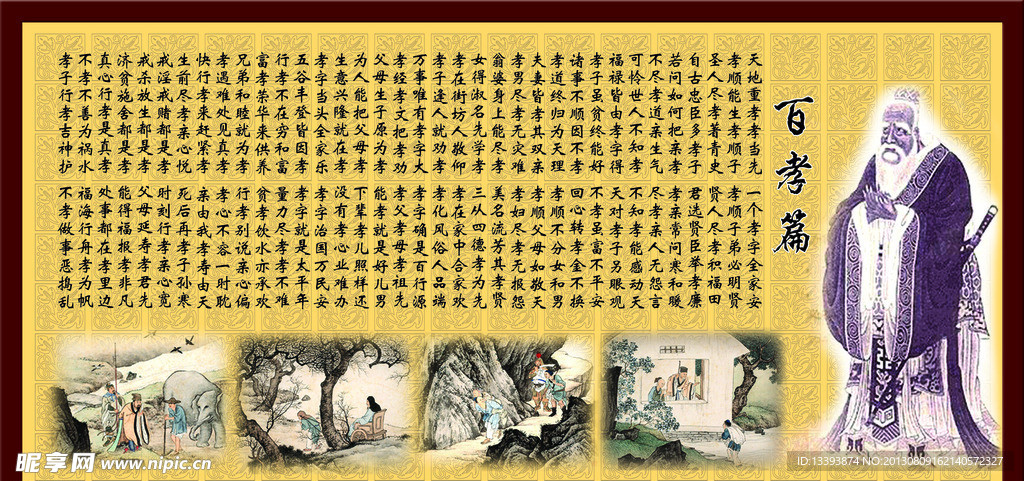 百孝篇
天地重孝孝当先
孝顺能生孝顺子
圣人尽孝着青史
自古忠臣多孝子
若问如何把亲孝
不尽孝道亲生气
可怜世人不知孝
福禄皆由孝字得
孝子虽贫终能好
诸事不顺因不孝
孝道终归为天理
夫妻皆孝其双亲
孝男尽孝无灾难
翁婆身上能尽孝
女得淑名先学孝
孝在街坊人敬仰
孝子逢人就劝孝
万事唯有孝字大
孝经孝文把孝劝
父母生子原为孝
为人能把父母孝
生意兴隆就在孝
孝字当头全家乐
五谷丰登皆因孝
行孝不在穷和富
富孝荣华来供养
兄弟和睦就为孝
孝遇难处见真孝
快行孝来赶紧孝
生前尽孝亲心悦
戒淫戒赌都是孝
戒杀放生都是孝
济贫施舍都是孝
真心行孝是真孝
不孝不善为祸水
孝子行孝吉神护
一个孝字全家安
孝顺子弟必明贤
贤人尽孝积福田
君选贤臣举孝廉
孝亲常问寒和暖
尽孝亲人无怨言
不知孝能感动天
天对孝子另眼观
不孝虽富不平安
回心转孝金不换
孝顺不分女和男
孝顺父母如敬天
孝妇尽孝无报怨
美名流芳其孝贤
三从四德孝为先
孝在家中合家欢
孝化风俗人品端
孝字确是百行源
孝父孝母孝祖先
能孝就是好儿男
下辈孝儿照样还
没有孝心业难办
孝字治国万民安
孝字就是太平年
量力尽孝孝不难
贫孝饮水亦承欢
行孝别说亲心偏
孝心不容一时耽
亲由我孝寿由天
死后再孝子孙寒
时刻行孝亲心宽
父母延寿孝君先
能得福报孝非凡
处事都在孝里边
福海行舟孝为帆
不孝做事恶捣乱
昵享网 www.nipic.cn
ID:13393874 NO:20130809162140572327